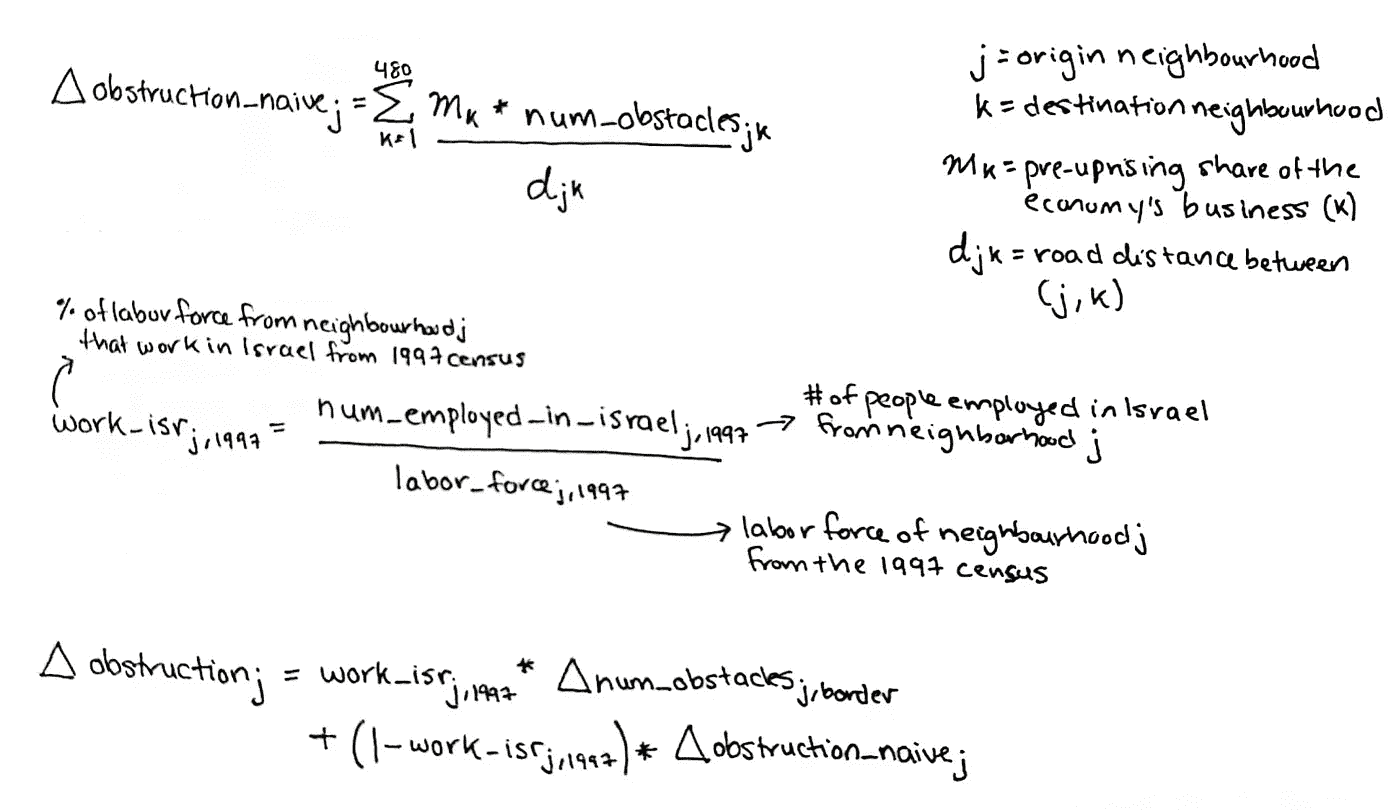 Δ obstruction_naive_j = Σ_{k=1}^{480} m_k * num_obstacles_jk / d_jk
j = origin neighbourhood
k = destination neighbourhood
m_k = pre-uprising share of the
economy's business (k)
d_jk = road distance between
(j, k)
% of labor force from neighbourhood j
that work in Israel from 1997 census
work_isr_j,1997 = num_employed_in_israel_j,1997 / labor_force_j,1997
→ # of people employed in Israel
from neighborhood j
→ labor force of neighbourhood j
from the 1997 census
Δ obstruction_j = work_isr_j,1997 * Δnum_obstacles_j,border
+ (1-work_isr_j,1997) * Δobstruction_naive_j